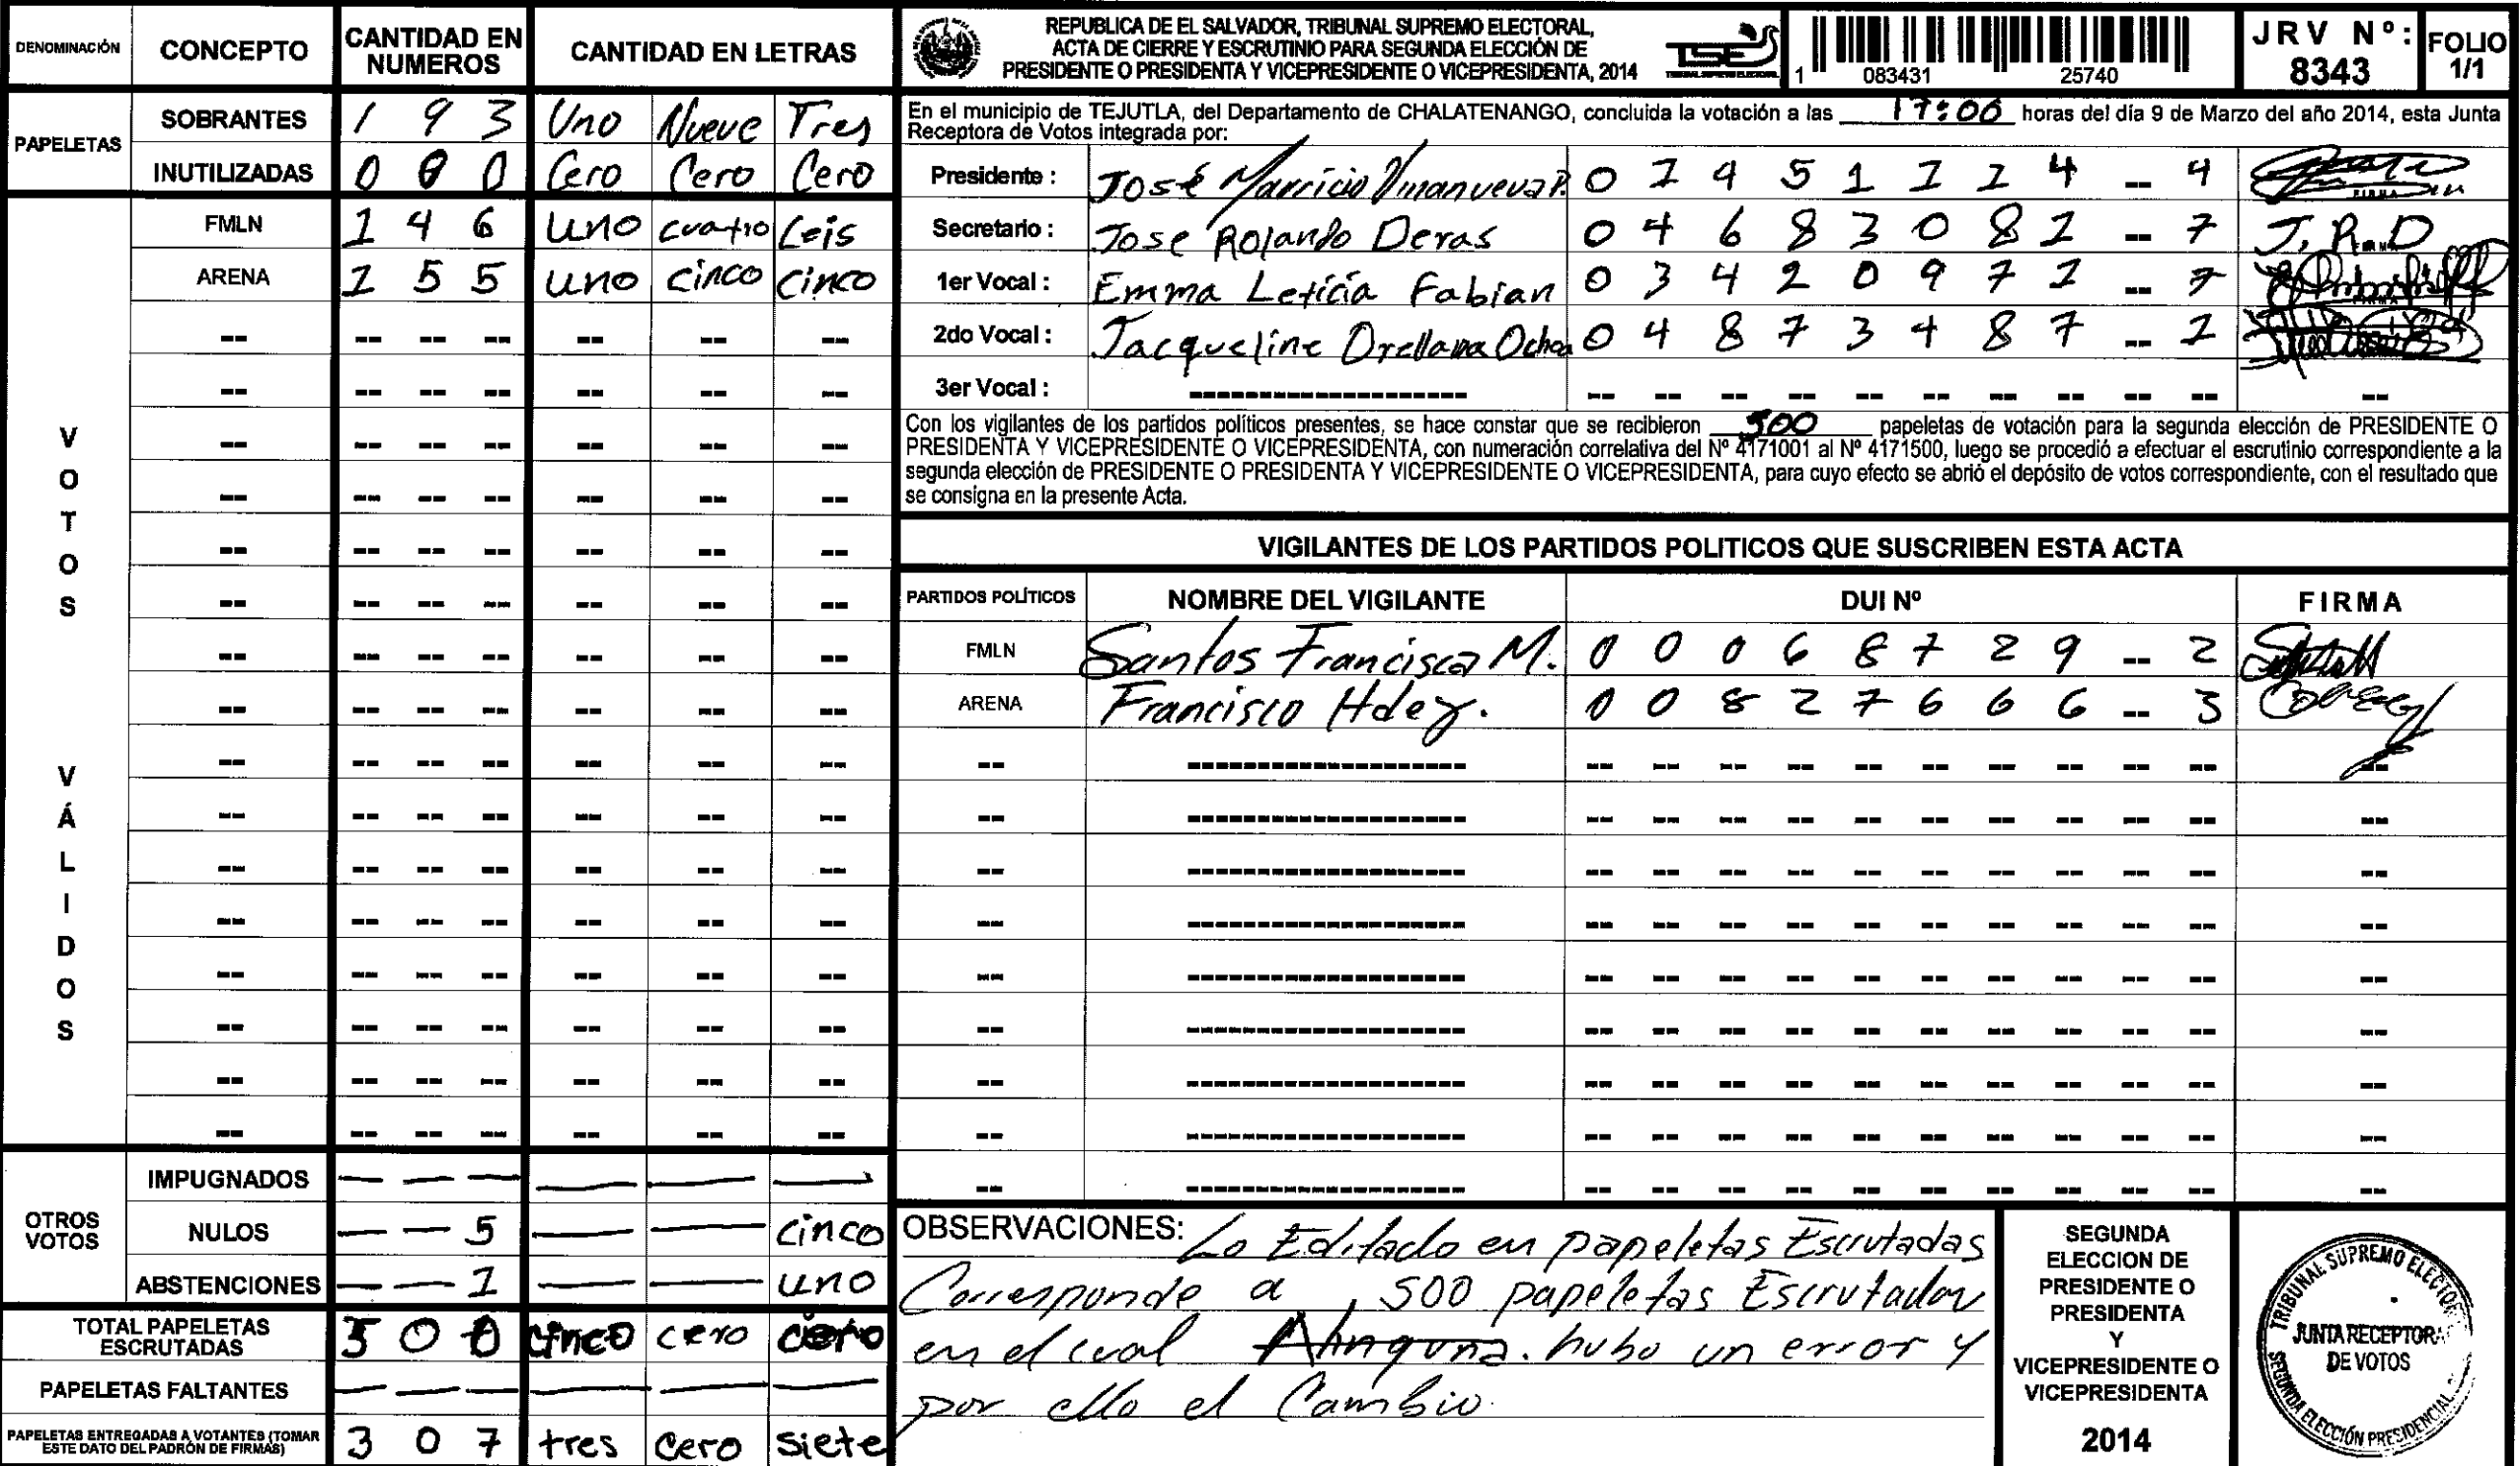 DENOMINACIÓN CONCEPTO CANTIDAD EN NUMEROS CANTIDAD EN LETRAS
PAPELETAS
SOBRANTES 1 9 3 Uno Nueve Tres
INUTILIZADAS 0 0 0 Cero Cero Cero
VOTOS VÁLIDOS
FMLN 1 4 6 uno cuatro Leis
ARENA 1 5 5 uno cinco cinco
OTROS VOTOS
IMPUGNADOS — — — — — —
NULOS — — 5 — — cinco
ABSTENCIONES — — 1 — — uno
TOTAL PAPELETAS ESCRUTADAS 5 0 0 cinco cero cero
PAPELETAS FALTANTES — — — — — —
PAPELETAS ENTREGADAS A VOTANTES (TOMAR ESTE DATO DEL PADRÓN DE FIRMAS) 3 0 7 tres cero siete
REPUBLICA DE EL SALVADOR, TRIBUNAL SUPREMO ELECTORAL,
ACTA DE CIERRE Y ESCRUTINIO PARA SEGUNDA ELECCIÓN DE
PRESIDENTE O PRESIDENTA Y VICEPRESIDENTE O VICEPRESIDENTA, 2014
TSE
1 083431 25740
JRV Nº: 8343
FOLIO 1/1
En el municipio de TEJUTLA, del Departamento de CHALATENANGO, concluida la votación a las 17:00 horas del día 9 de Marzo del año 2014, esta Junta
Receptora de Votos integrada por:
Presidente : José Mauricio 0 1 4 5 1 1 1 4 -- 4
Secretario : Jose Rolando Deras 0 4 6 8 3 0 8 1 -- 7 J.R.D
1er Vocal : Emma Leticia Fabian 0 3 4 2 0 9 7 1 -- 7
2do Vocal : Jacqueline Orellana Ochoa 0 4 8 7 3 4 8 7 -- 1
3er Vocal :
Con los vigilantes de los partidos políticos presentes, se hace constar que se recibieron 500 papeletas de votación para la segunda elección de PRESIDENTE O
PRESIDENTA Y VICEPRESIDENTE O VICEPRESIDENTA, con numeración correlativa del Nº 4171001 al Nº 4171500, luego se procedió a efectuar el escrutinio correspondiente a la
segunda elección de PRESIDENTE O PRESIDENTA Y VICEPRESIDENTE O VICEPRESIDENTA, para cuyo efecto se abrió el depósito de votos correspondiente, con el resultado que
se consigna en la presente Acta.
VIGILANTES DE LOS PARTIDOS POLITICOS QUE SUSCRIBEN ESTA ACTA
PARTIDOS POLÍTICOS NOMBRE DEL VIGILANTE DUI Nº FIRMA
FMLN Santos Francisca M. 0 0 0 6 8 7 2 9 -- 2
ARENA Francisco Hdez. 0 0 8 2 7 6 6 6 -- 3
OBSERVACIONES: Lo Editado en papeletas Escrutadas
Corresponde a , 500 papeletas Escrutadas
en el cual hubo un error y
por ello el Cambio.
SEGUNDA
ELECCION DE
PRESIDENTE O
PRESIDENTA
Y
VICEPRESIDENTE O
VICEPRESIDENTA
2014
TRIBUNAL SUPREMO ELECTORAL
JUNTA RECEPTORA
DE VOTOS
SEGUNDA ELECCIÓN PRESIDENCIAL